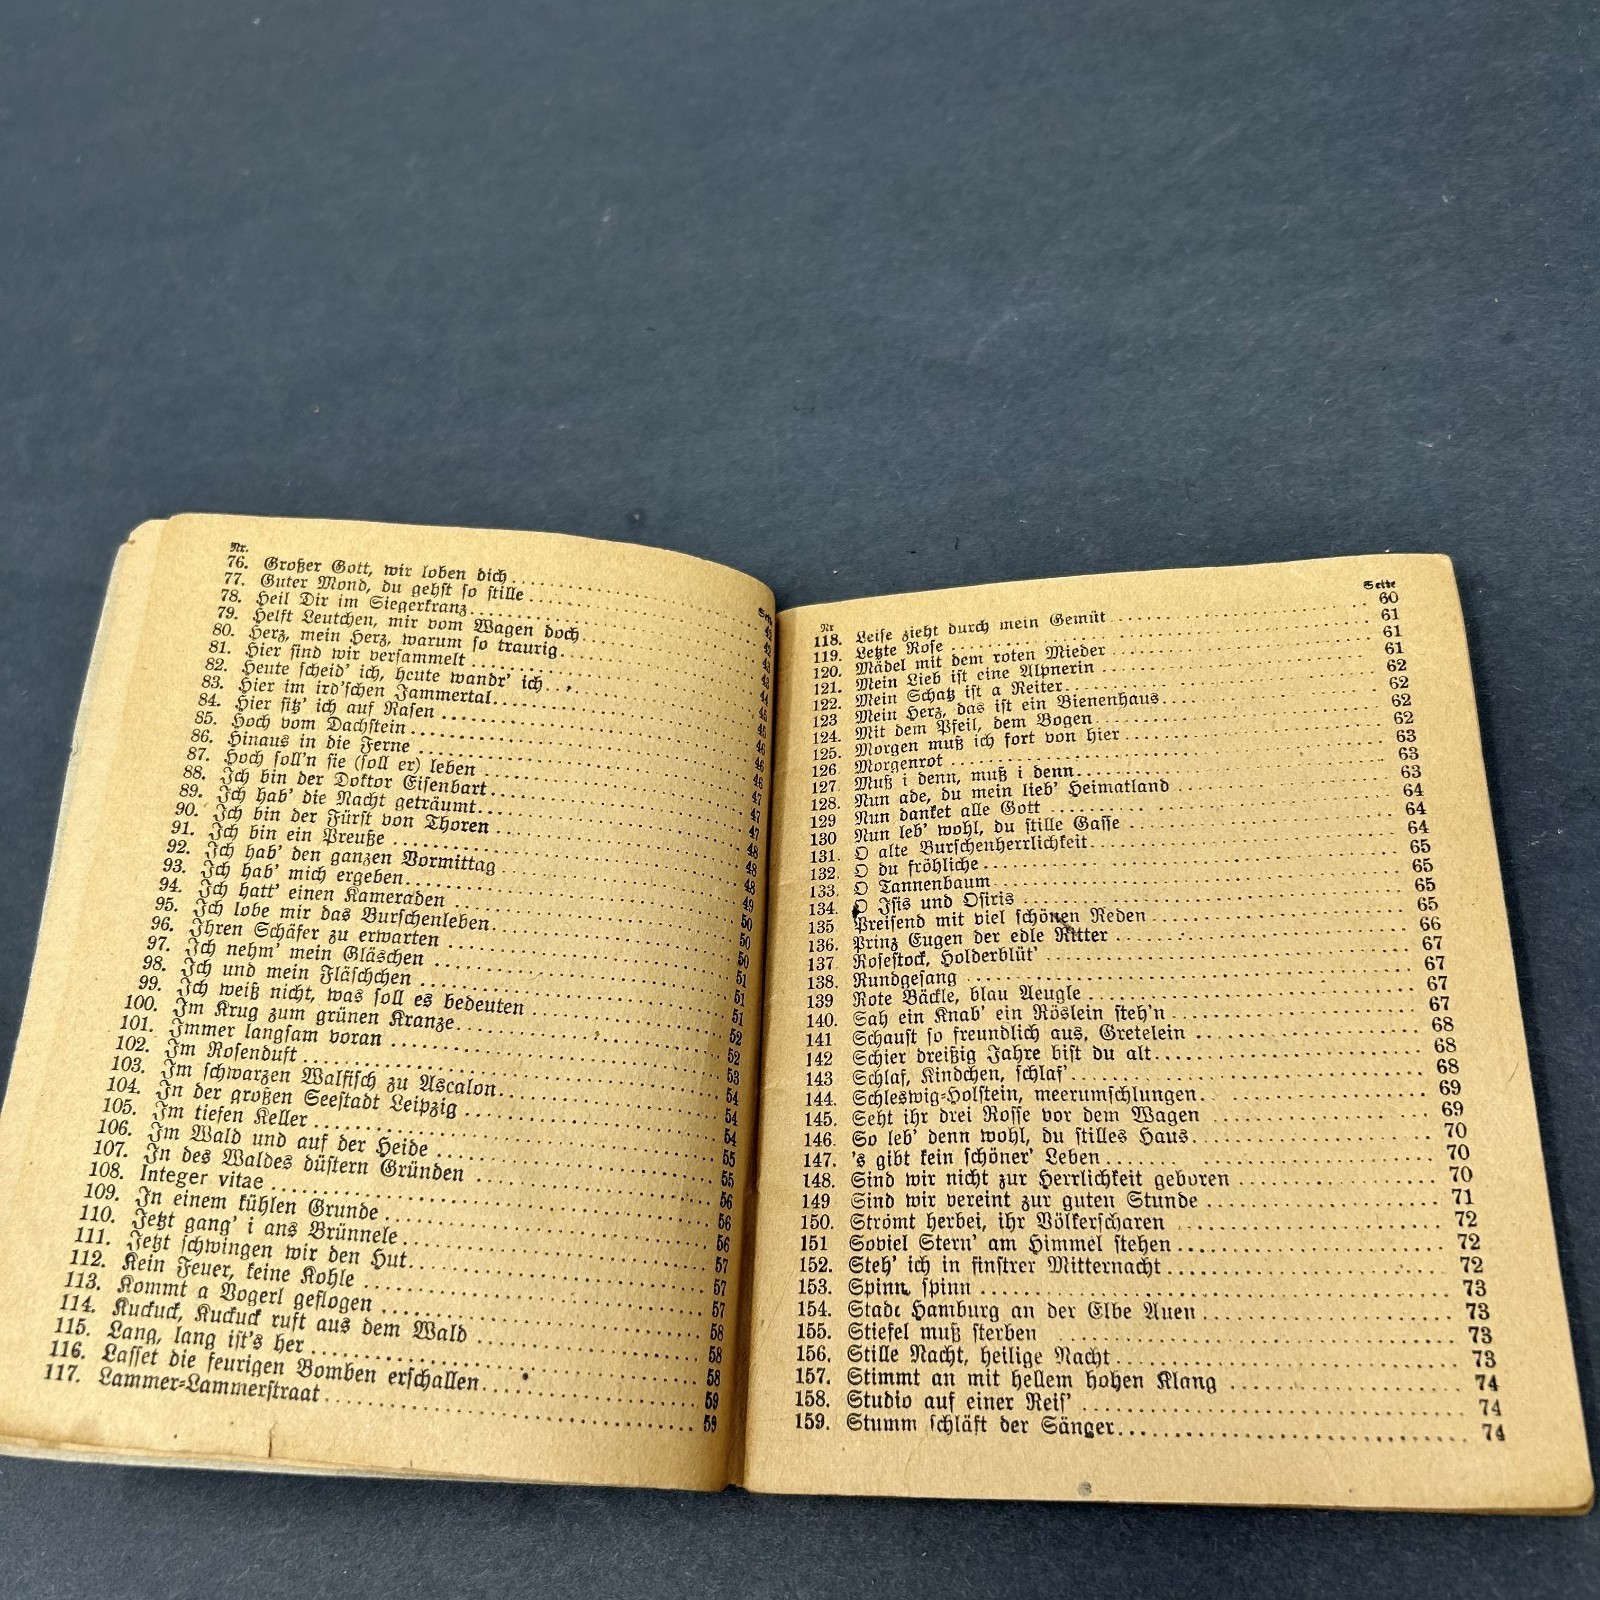 Nr.
Seite
76. Großer Gott, wir loben dich 42
77. Guter Mond, du gehst so stille 42
78. Heil Dir im Siegerkranz 43
79. Helft Leutchen, mir vom Wagen doch 43
80. Herz, mein Herz, warum so traurig 44
81. Hier sind wir versammelt 45
82. Heute scheid' ich, heute wandr' ich 45
83. Hier im ird'schen Jammertal 46
84. Hier sitz' ich auf Rasen 46
85. Hoch vom Dachstein 46
86. Hinaus in die Ferne 47
87. Hoch soll'n sie (soll er) leben 47
88. Ich bin der Doktor Eisenbart 47
89. Ich hab' die Nacht geträumt 48
90. Ich bin der Fürst von Thoren 48
91. Ich bin ein Preuße 48
92. Ich hab' den ganzen Vormittag 49
93. Ich hab' mich ergeben 50
94. Ich hatt' einen Kameraden 50
95. Ich lobe mir das Burschenleben 50
96. Ihren Schäfer zu erwarten 51
97. Ich nehm' mein Gläschen 51
98. Ich und mein Fläschchen 51
99. Ich weiß nicht, was soll es bedeuten 52
100. Im Krug zum grünen Kranze 52
101. Immer langsam voran 53
102. Im Rosenduft 54
103. Im schwarzen Walfisch zu Ascalon 54
104. In der großen Seestadt Leipzig 54
105. Im tiefen Keller 55
106. Im Wald und auf der Heide 55
107. In des Waldes düstern Gründen 56
108. Integer vitae 56
109. In einem kühlen Grunde 56
110. Jetzt gang' i ans Brünnele 57
111. Jetzt schwingen wir den Hut 57
112. Kein Feuer, keine Kohle 57
113. Kommt a Vogerl geflogen 58
114. Kuckuck, Kuckuck ruft aus dem Wald 58
115. Lang, lang ist's her 58
116. Lasset die feurigen Bomben erschallen 59
117. Lammer-Lammerstraat 59
Nr
Seite
118. Leise zieht durch mein Gemüt 60
119. Letzte Rose 61
120. Mädel mit dem roten Mieder 61
121. Mein Lieb ist eine Alpnerin 61
122. Mein Schatz ist a Reiter 62
123 Mein Herz, das ist ein Bienenhaus 62
124. Mit dem Pfeil, dem Bogen 62
125. Morgen muß ich fort von hier 62
126 Morgenrot 63
127. Muß i denn, muß i denn 63
128. Nun ade, du mein lieb' Heimatland 63
129 Nun danket alle Gott 64
130 Nun leb' wohl, du stille Gasse 64
131. O alte Burschenherrlichkeit 64
132. O du fröhliche 65
133. O Tannenbaum 65
134. O Isis und Osiris 65
135 Preisend mit viel schönen Reden 65
136. Prinz Eugen der edle Ritter 66
137 Rosestock, Holderblüt' 67
138. Rundgesang 67
139 Rote Bäckle, blau Aeugle 67
140. Sah ein Knab' ein Röslein steh'n 67
141 Schaust so freundlich aus, Gretelein 68
142 Schier dreißig Jahre bist du alt 68
143 Schlaf, Kindchen, schlaf' 68
144. Schleswig-Holstein, meerumschlungen 69
145. Seht ihr drei Rosse vor dem Wagen 69
146. So leb' denn wohl, du stilles Haus 70
147. 's gibt kein schöner' Leben 70
148. Sind wir nicht zur Herrlichkeit geboren 70
149 Sind wir vereint zur guten Stunde 71
150. Strömt herbei, ihr Völkerscharen 72
151 Soviel Stern' am Himmel stehen 72
152. Steh' ich in finstrer Mitternacht 72
153. Spinn, spinn 73
154. Stadt Hamburg an der Elbe Auen 73
155. Stiefel muß sterben 73
156. Stille Nacht, heilige Nacht 73
157. Stimmt an mit hellem hohen Klang 74
158. Studio auf einer Reis' 74
159. Stumm schläft der Sänger 74